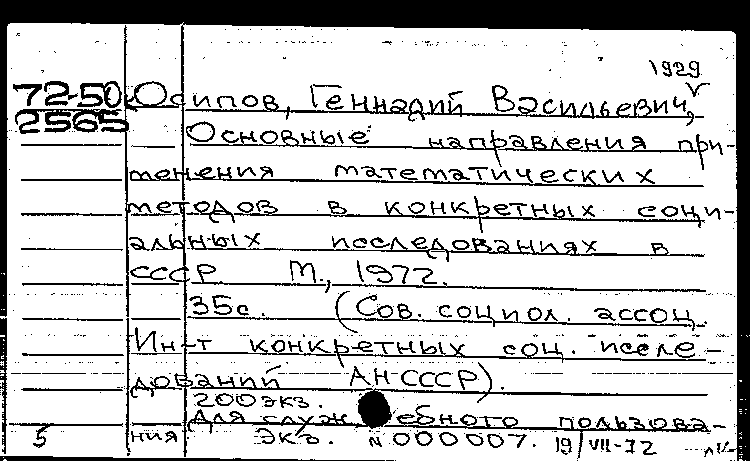 1929
72-50 Осипов, Геннадий Васильевич,
2565 Основные направления при-
менения математических
методов в конкретных соци-
альных исследованиях в
СССР М., 1972.
35с. (Сов. социол. ассоц.
Ин-т конкретных соц. иссле-
дований АН СССР).
200 экз.
Для служебного пользова-
5 ния Экз. № 000007. 19/VII-72